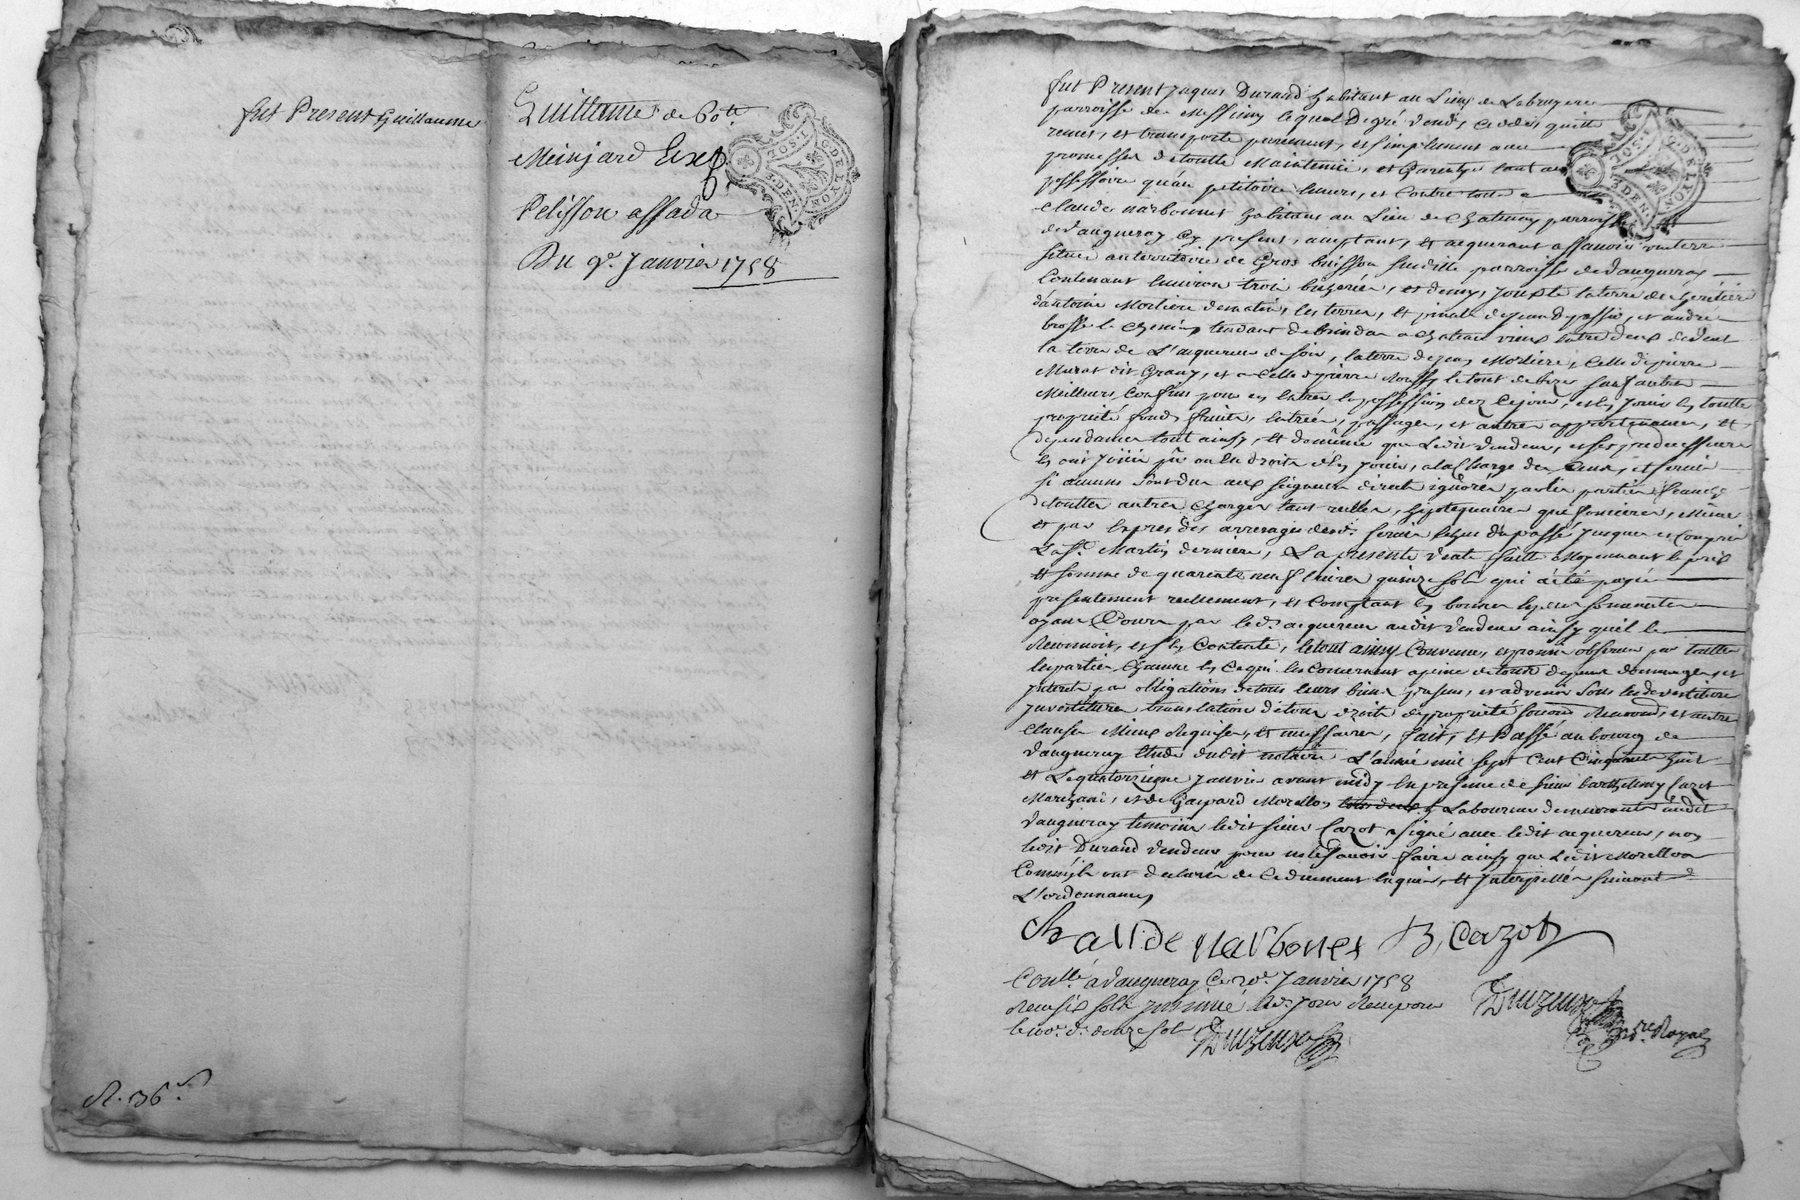 fut Present Guillaume
Guillaume de 60 tt
Meinjard
Pelisson assada
Du 9e. Janvier 1758
G. DE LYON
1. SOL
3. DEN.
R. 136
fut Present Jaques Durand habitant au Lieu de Labruyere
parroisse de Messimy lequel de gré vend, cedde, quitte
remet, et transporte purement, et simplement avec
promesse de toutte Maintenüe, et Garentye tant au
possessoire qu'au petitoire Envers, et Contre tous a
Claude narbonnet habitant au Lieu de Chatenay parroisse
de Vaugneray Cy present, aceptant, et aequerant assavoir une terre
située au territoire de Gros buisson susditte parroisse de Vaugneray
Contenant Environ trois bicherées, et demy, Jouxte la terre des heritiers
d'antoine Morliere de matin, les terres, et pinate de Jean dupassio, et andré
brosse le Chemin tendant de brindas a chateau vieux entre deux de vent
la terre de L'aequereur de soir, la terre de Jean Morliere, Celle de pierre
Murat dit Grany, et a Celle de pierre le tout de bize sauf autres
Meilleurs Confins pour en Entrer En possession dez Cejour, et En Jouir En toutte
proprieté fonds, fruits, Entrées, passages, et autres appartenances, et
dependances tout ainsy, et de même que Ledit Vendeur, et ses predecesseurs
En ont Jöüi pû ou En droits d'En Jouir, a la Charge des Cens, et servis
si aucuns sont dus aux seigneurs directs ignorés par les parties franche
de touttes autres Charges tant reelles, hipotequaires que foncieres, Même
et par Exprès des arrerages desd. servis Echus du passé Jusques et Compris
La St. Martin derniere, La presente vente faitte Moyennant le prix
et somme de quarente neuf livres quinze sols qui a été payée
presentement reellement, et Comptant En bonnes Especes sonnantes
ayant Cours par led. aequereur audit Vendeur ainsy qu'il le
Reconnoit, et s'En Contente, le tout ainsy Convenu, et promis observer par touttes
les parties Chacune En Ce qui les Concernent a peine de tous depens dommages, et
interets par obligations de tous leurs biens presents, et advenir sous les devestiture
Investiture translation de tous droits de proprieté soumis. Renonc. et autres
Clauses Mieux Requises, et necessaires, fait, et Passé au bourg de
Vaugneray Etude dudit notaire L'année mil sept Cent Cinquante huit
et Le quatorzieme Janvier avant midy En presence de sieur barthelemy Cazot
Marchand, et de Gaspard Morellon Laboureur demeurants audit
Vaugneray temoins ledit sieur Cazot a signé avec ledit aequereur, non
ledit Durand Vendeur pour ne le scavoir faire ainsy que Ledit Morellon
Comm'ils ont declarés de Ce duement Enquis, et Interpellés suivant
L'ordonnance
Claude narbonet B, Cazot
Conllé. a Vaugneray Ce 20e. Janvier 1758
Receu six sols
le 100e. dr. douze sols
Nore. Royal